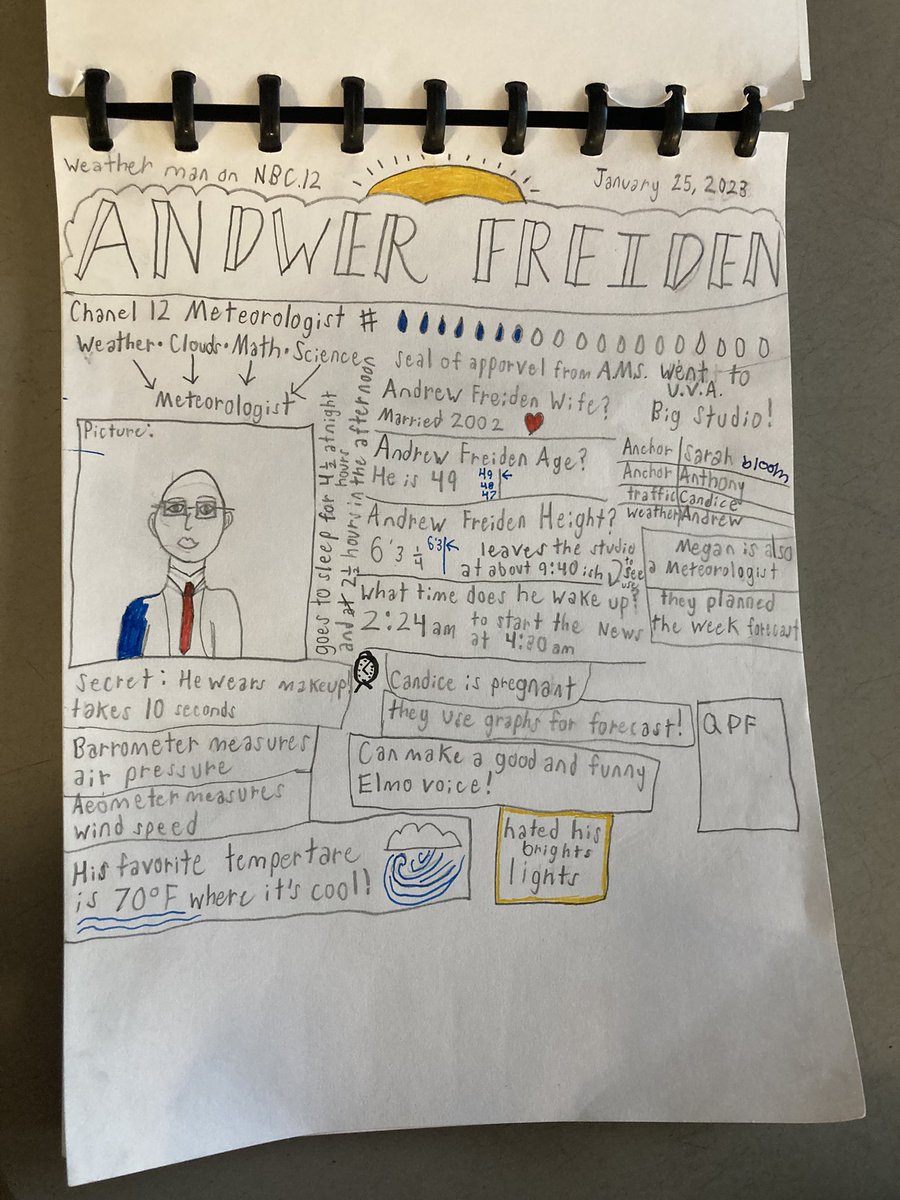 Weather man on NBC.12
January 25, 2023
ANDWER FREIDEN
Chanel 12 Meteorologist #
Weather • Clouds • Math • Science
Meteorologist
seal of apporvel from A.M.S.
went to
U.V.A.
Big Studio!
Andrew Freiden Wife?
Married 2002
Picture:
goes to sleep for 4 1/2 hours at night
and at 2 1/2 hours in the afternoon
Andrew Freiden Age?
He is 49
49
48
47
Anchor Sarah bloom
Anchor Anthony
traffic Candice
weather Andrew
Andrew Freiden Height?
6'3 1/4
6'3
leaves the studio
at about 9:40 ish
to
see
Megan is also
a Meteorologist
they planned
the week forecast
What time does he wake up?
2:24 am
to start the News
at 4:30 am
Secret: He wears makeup!
takes 10 seconds
Candice is pregnant
they use graphs for forecast!
QPF
Barrometer measures
air pressure
Can make a good and funny
Elmo voice!
Aeometer measures
wind speed
hated his
brights
lights
His favorite tempertare
is 70°F where it's cool!